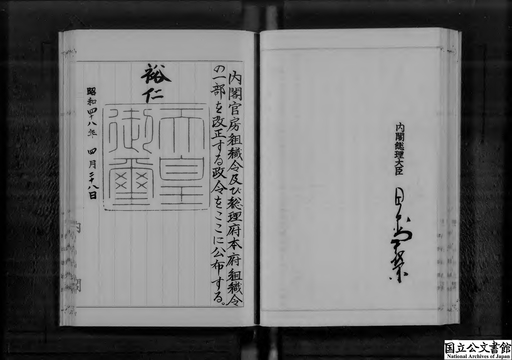 内閣総理大臣
田中角榮
内閣官房組織令及び総理府本府組織令
の一部を改正する政令をここに公布する。
裕仁
天皇
御璽
昭和四十八年 四月二十八日
国立公文書館
National Archives of Japan